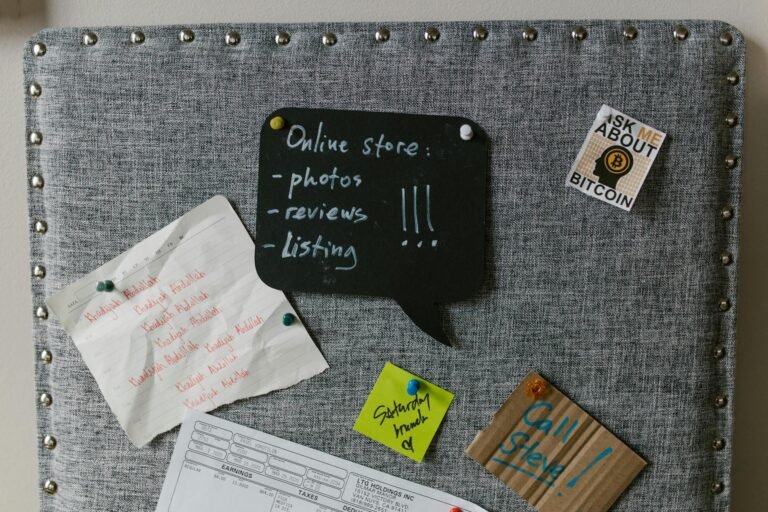 Online store:
- photos
- reviews
- Listing
!!!
ASK ME
ABOUT
BITCOIN
Khadijah Abdullah
Khadijah Abdullah
Khadijah Abdullah
Khadijah Abdullah
Khadijah Abdullah
Khadijah Abdullah
Khadijah Abdullah
Khadijah Abdullah
Saturday
brunch
Call
Steve!
EARNINGS
TAXES
REGULAR
LTG HOLDINGS INC